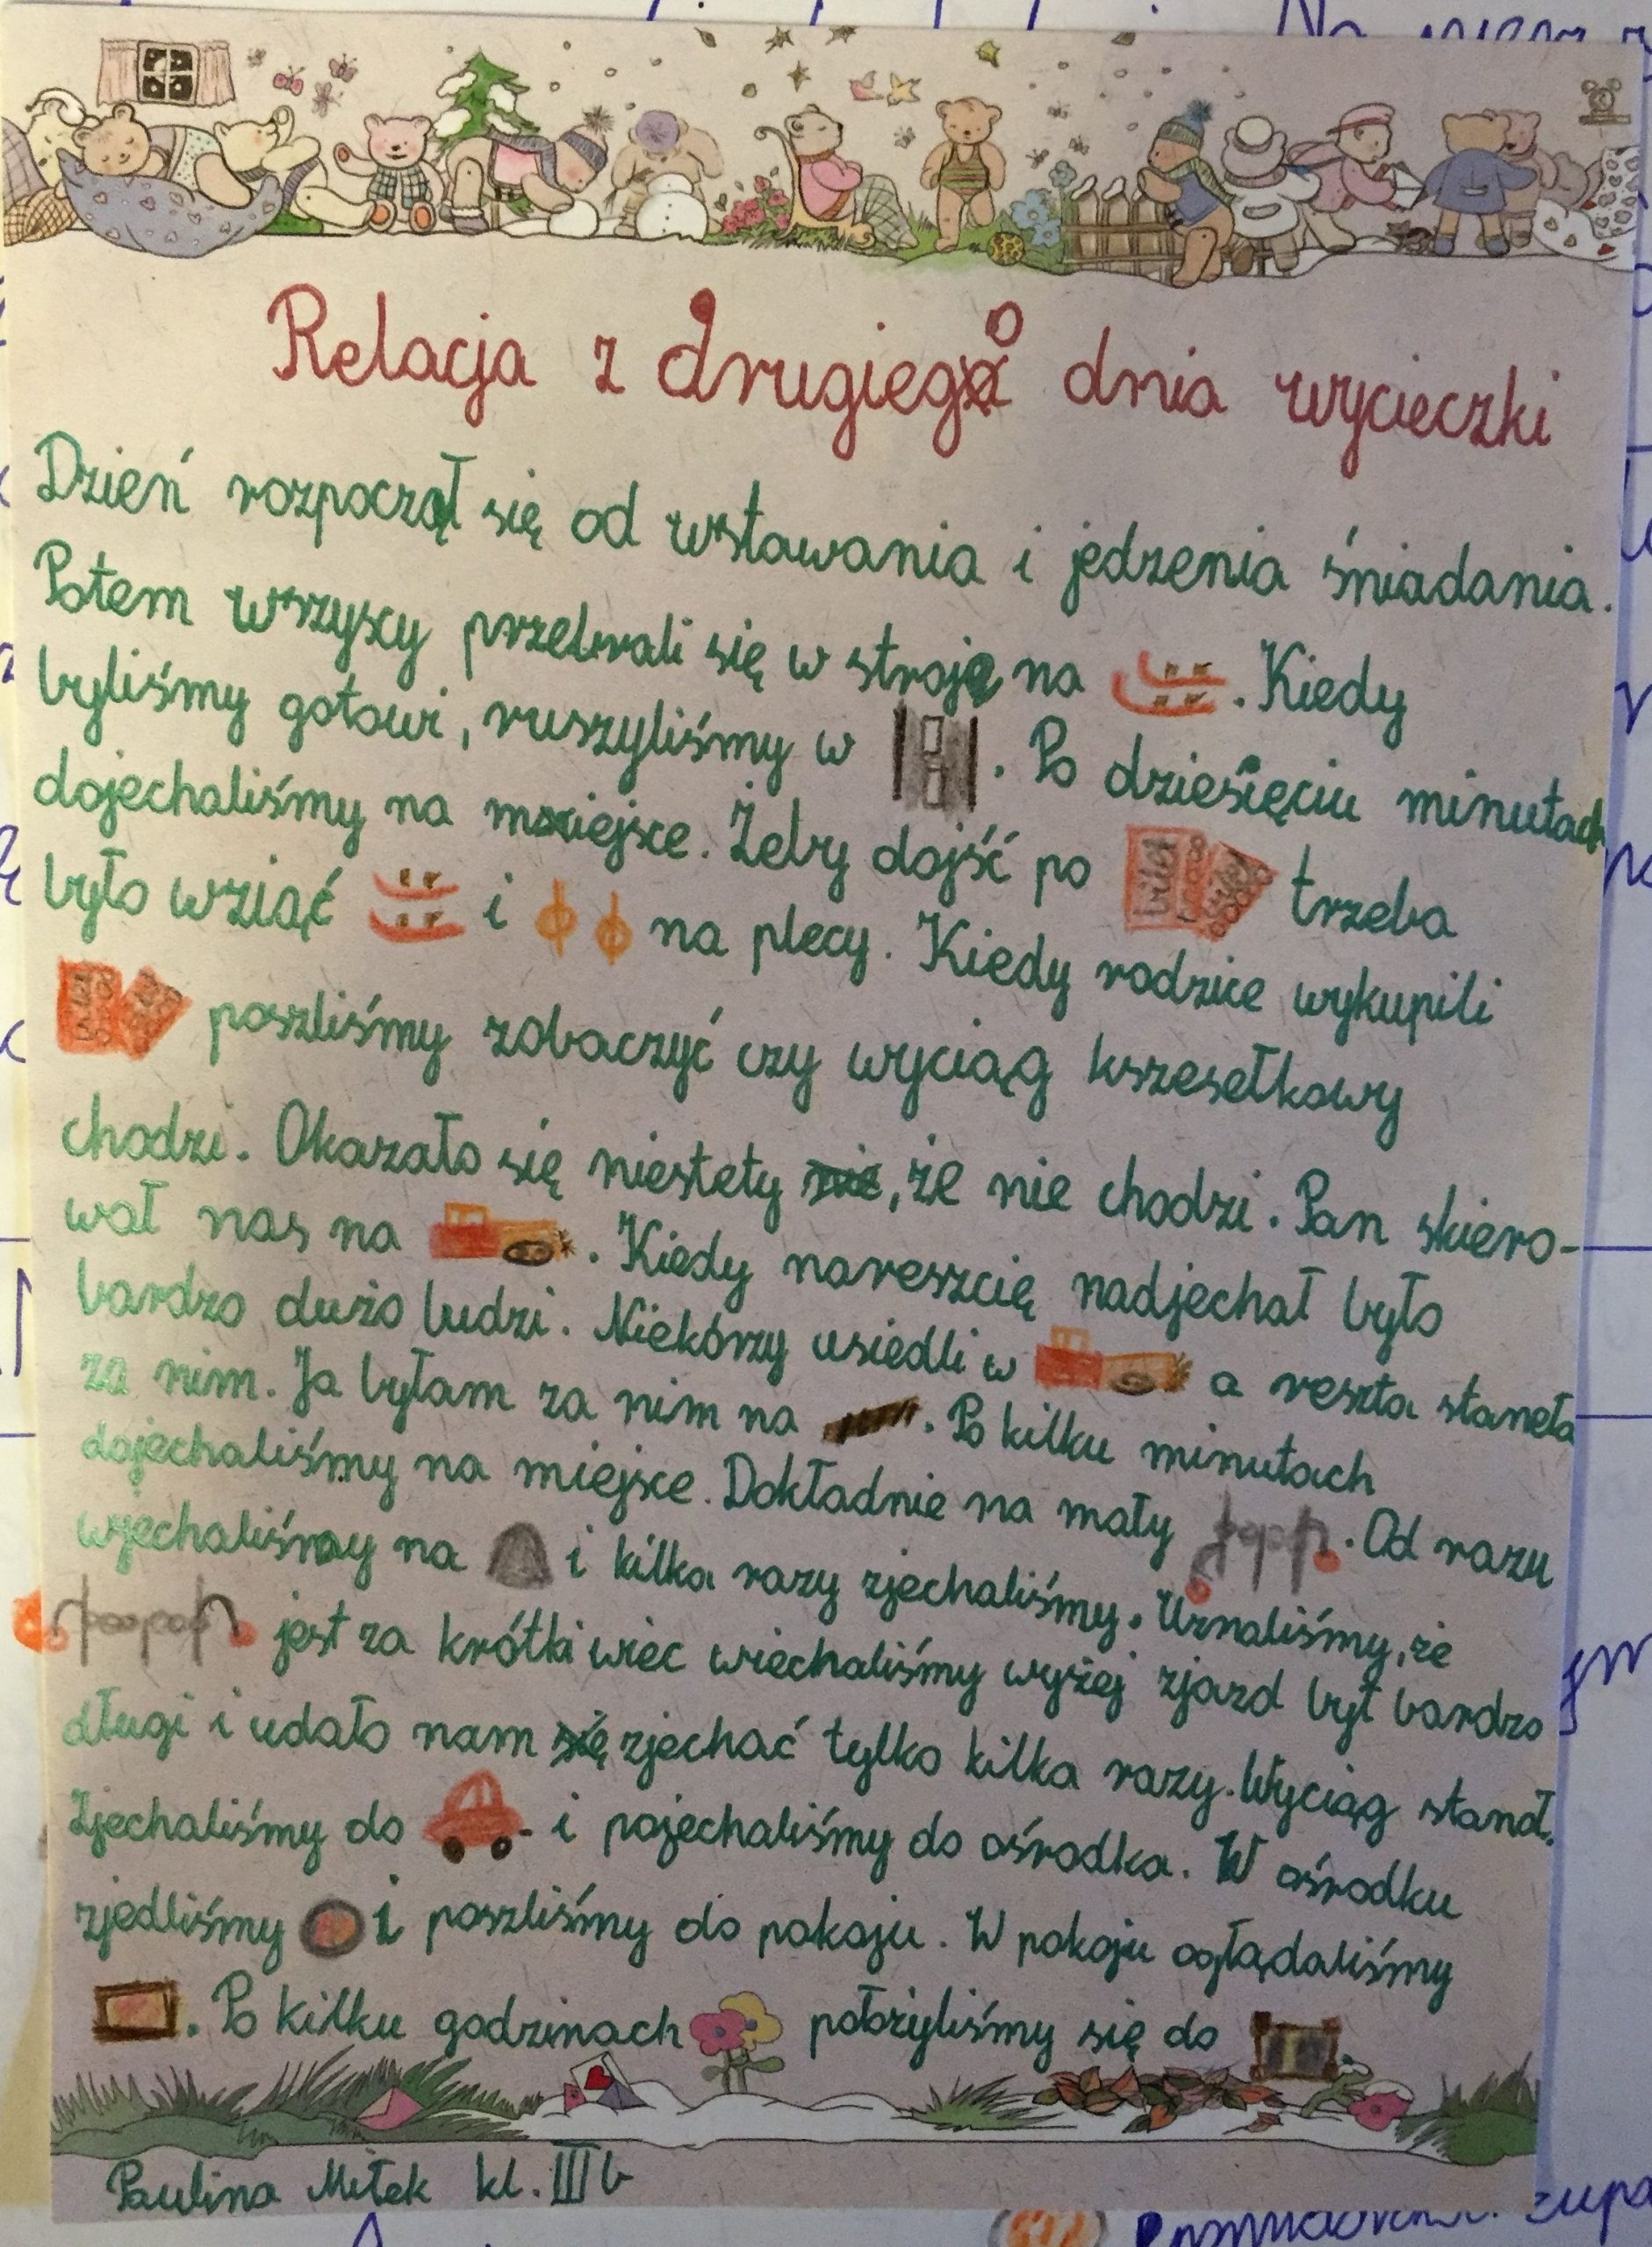 Relacja z drugiego dnia wycieczki
Dzień rozpoczął się od wstawania i jedzenia śniadania.
Potem wszyscy przebrali się w stroje na . Kiedy
byliśmy gotowi, ruszyliśmy w . Po dziesięciu minutach
dojechaliśmy na miejsce. Żeby dojść po trzeba
było wziąć i na plecy. Kiedy rodzice wykupili
poszliśmy zobaczyć czy wyciąg kszesełkowy
chodzi. Okazało się niestety, że nie chodzi. Pan skiero-
wał nas na . Kiedy nareszcię nadjechał było
bardzo dużo ludzi. Niekórzy usiedli w a reszta staneła
za nim. Ja byłam za nim na . Po kilku minutach
dojechaliśmy na miejsce. Dokładnie na mały . Od razu
wjechaliśmy na i kilka razy zjechaliśmy. Uznaliśmy, że
jest za krótki wiec wiechaliśmy wyżej zjazd był bardzo
długi i udało nam zjechać tylko kilka razy. Wyciąg stanął.
Zjechaliśmy do i pojechaliśmy do ośrodka. W ośrodku
zjedliśmy i poszliśmy do pokoju. W pokoju oglądaliśmy
. Po kilku godzinach położyliśmy się do .
Paulina Mełek kl. III b